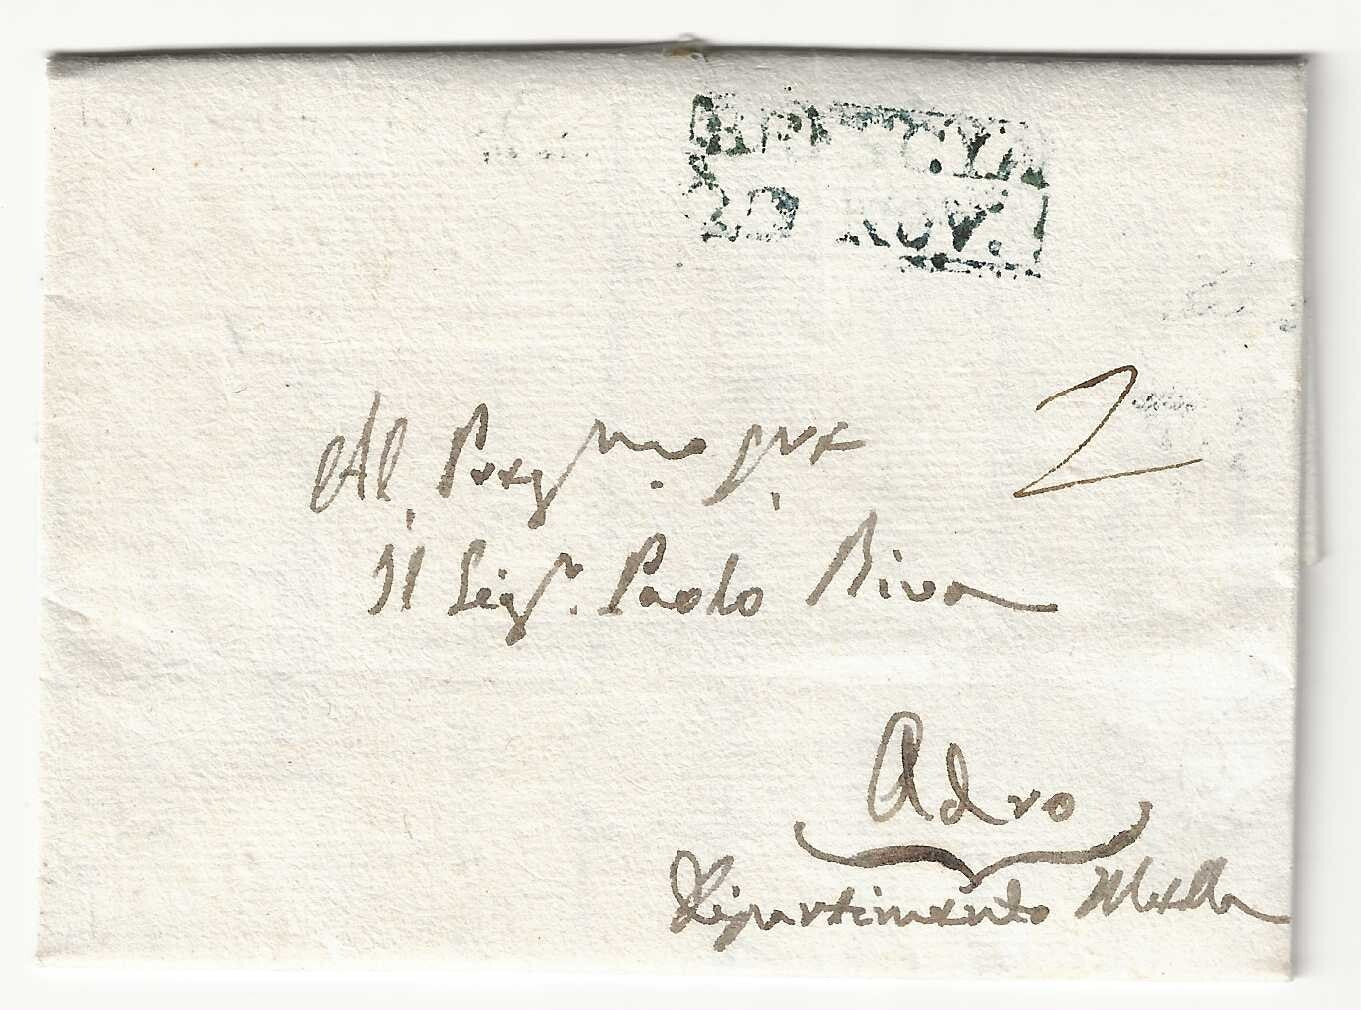 NOV.
2
Al Preg.mo Sigr
Il Sigr. Paolo Riva
Adro
Dipartimento Mella